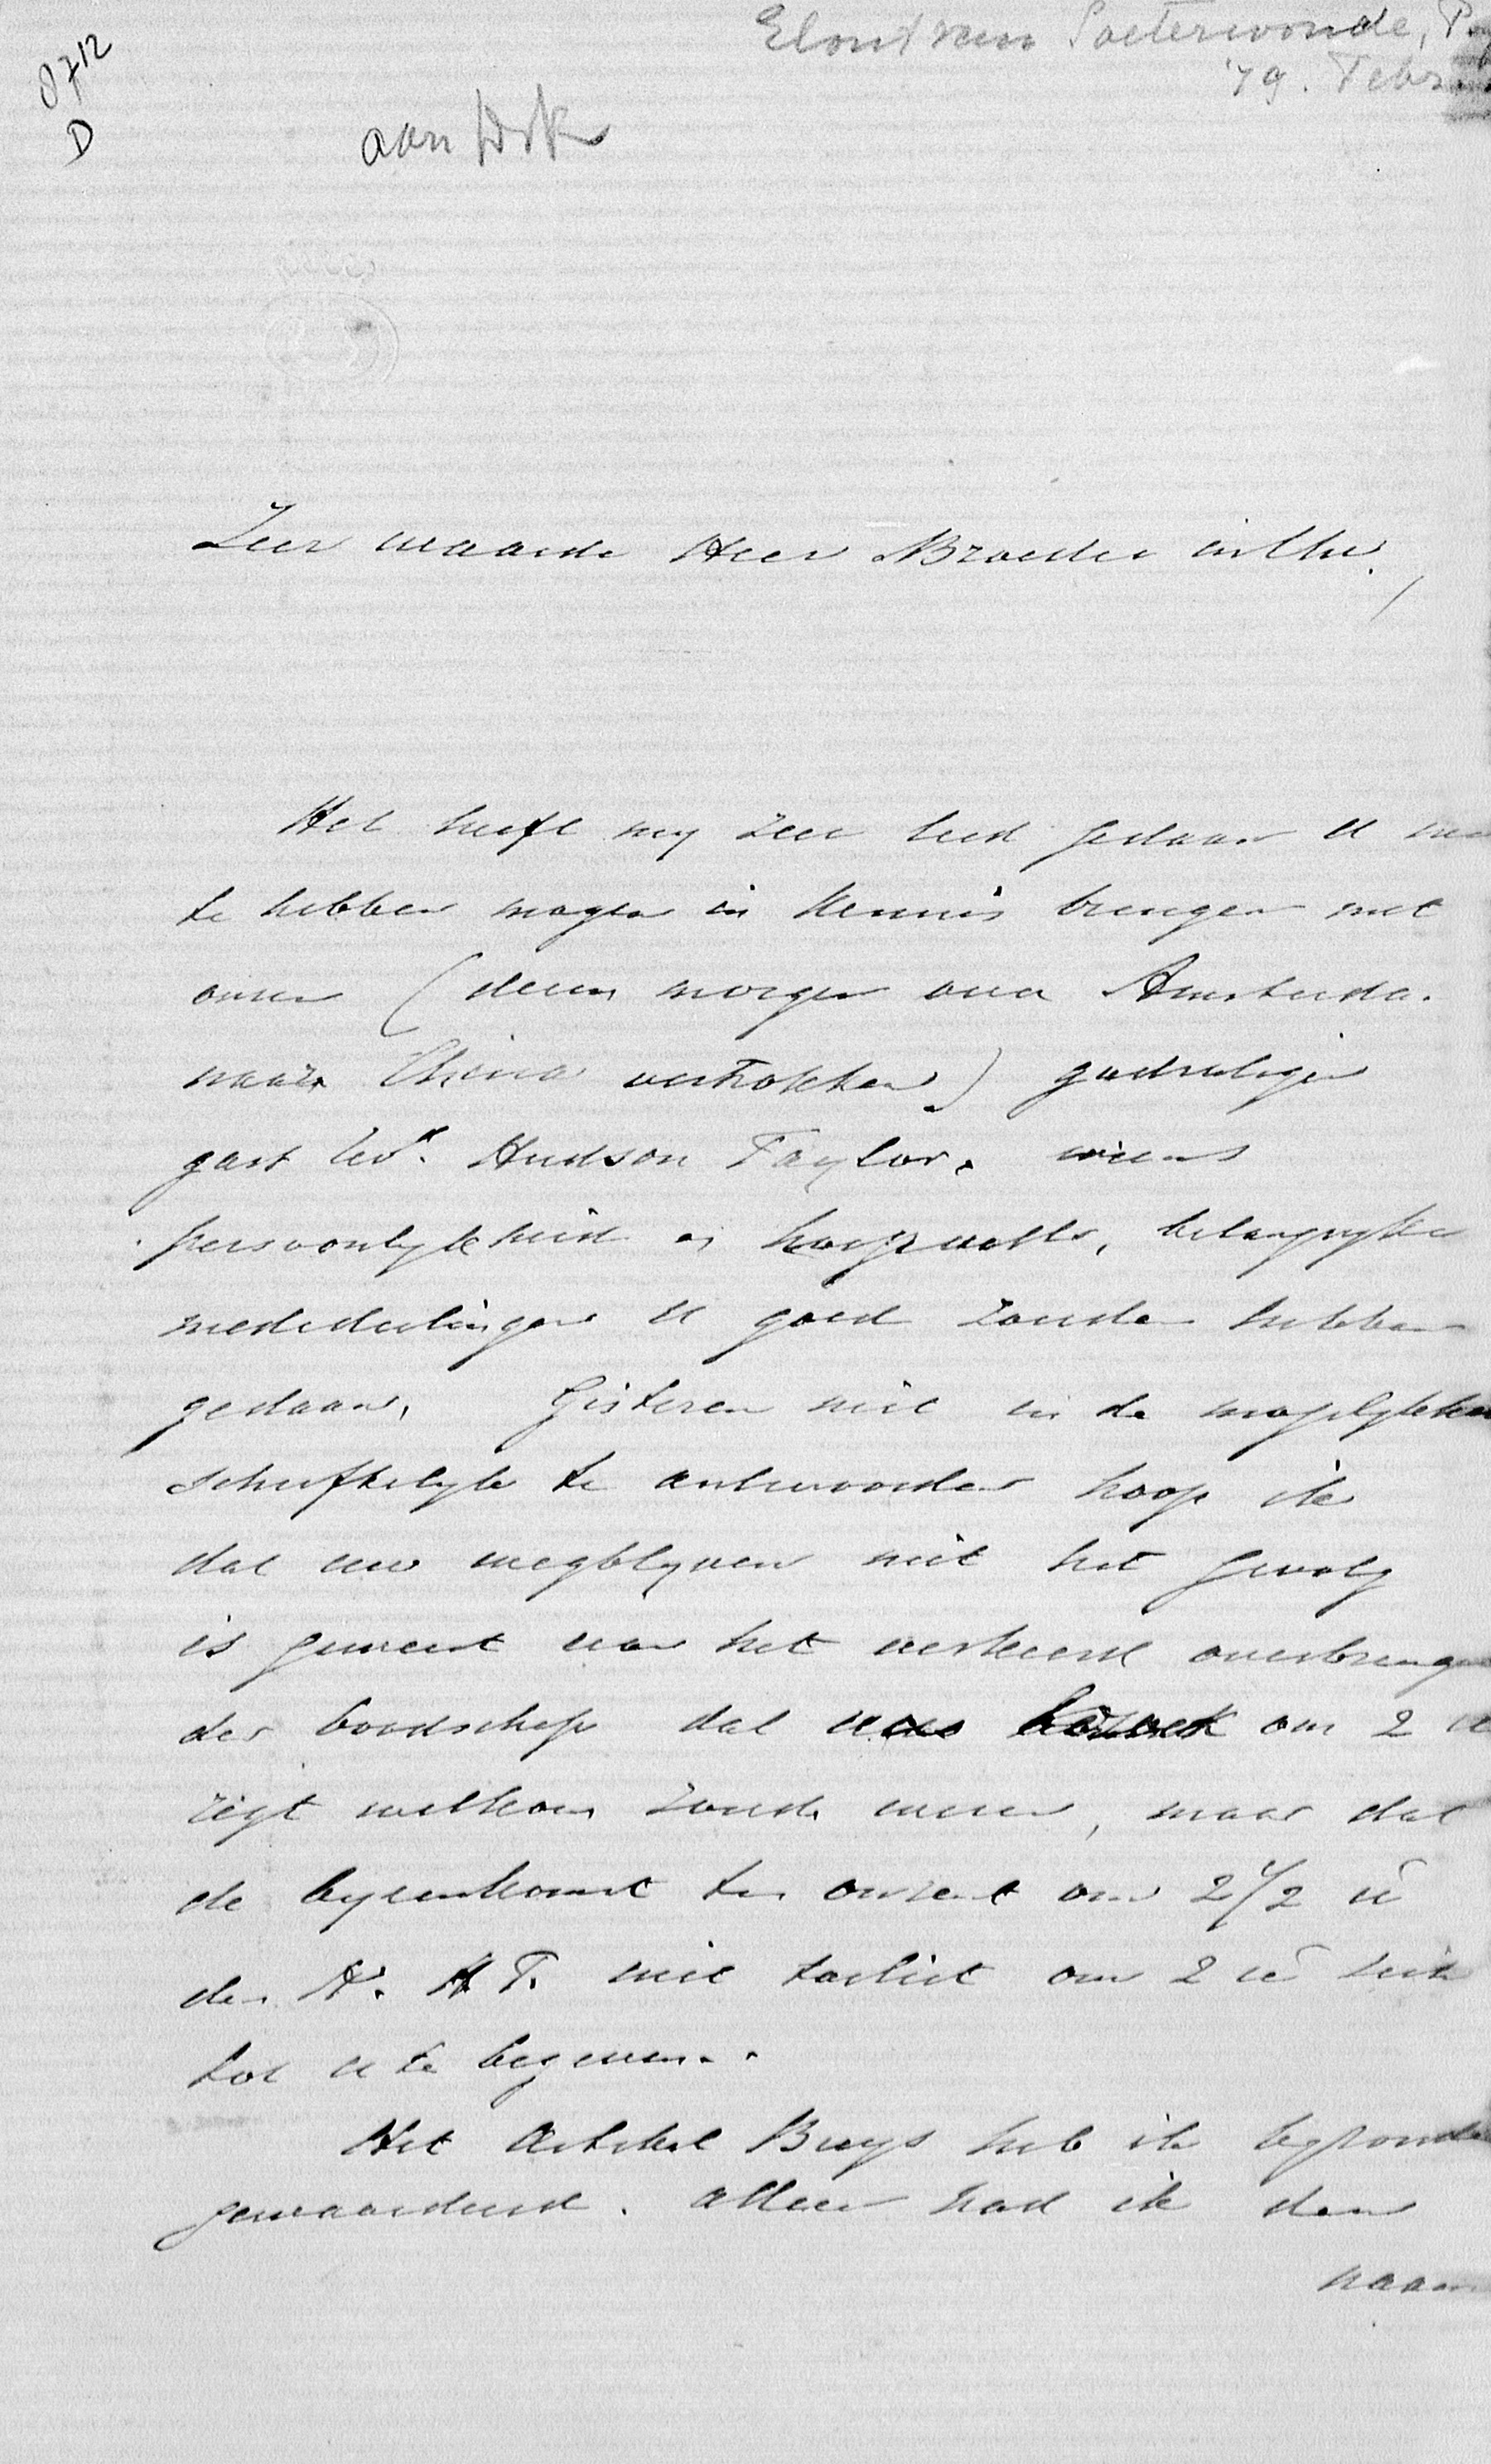 Elout van Soeterwoude, P
'79. Febr
8712
D
aan
Zeer waarde Heer & Broeder in Chr.
Het heeft my zeer leed gedaan U
te hebben mogen in kennis brengen met
onzen (dezen morgen over Amsterda.
naar China vertrokken) godzaligen
gast Hudson Taylor. wiens
persoonlykheid en belangryke
mededeelingen U goed zouden hebben
gedaan. Gisteren niet in de mogelykhe
schriftelyk te antwoorden hoop ik
dat uw wegblyven niet het gevolg
is geweest van het verkeerd overbrenge
der boodschap dat uw bezoek om 2 u
zeer welkom zoude wezen, maar dat
de byeenkomst ten onzent om 2 1/2 u
den H. H T. niet toeliet om 2 u
tot U te begeven.
Het Artikel Buys heb ik
gewaardeerd. Alleen had ik den
naam